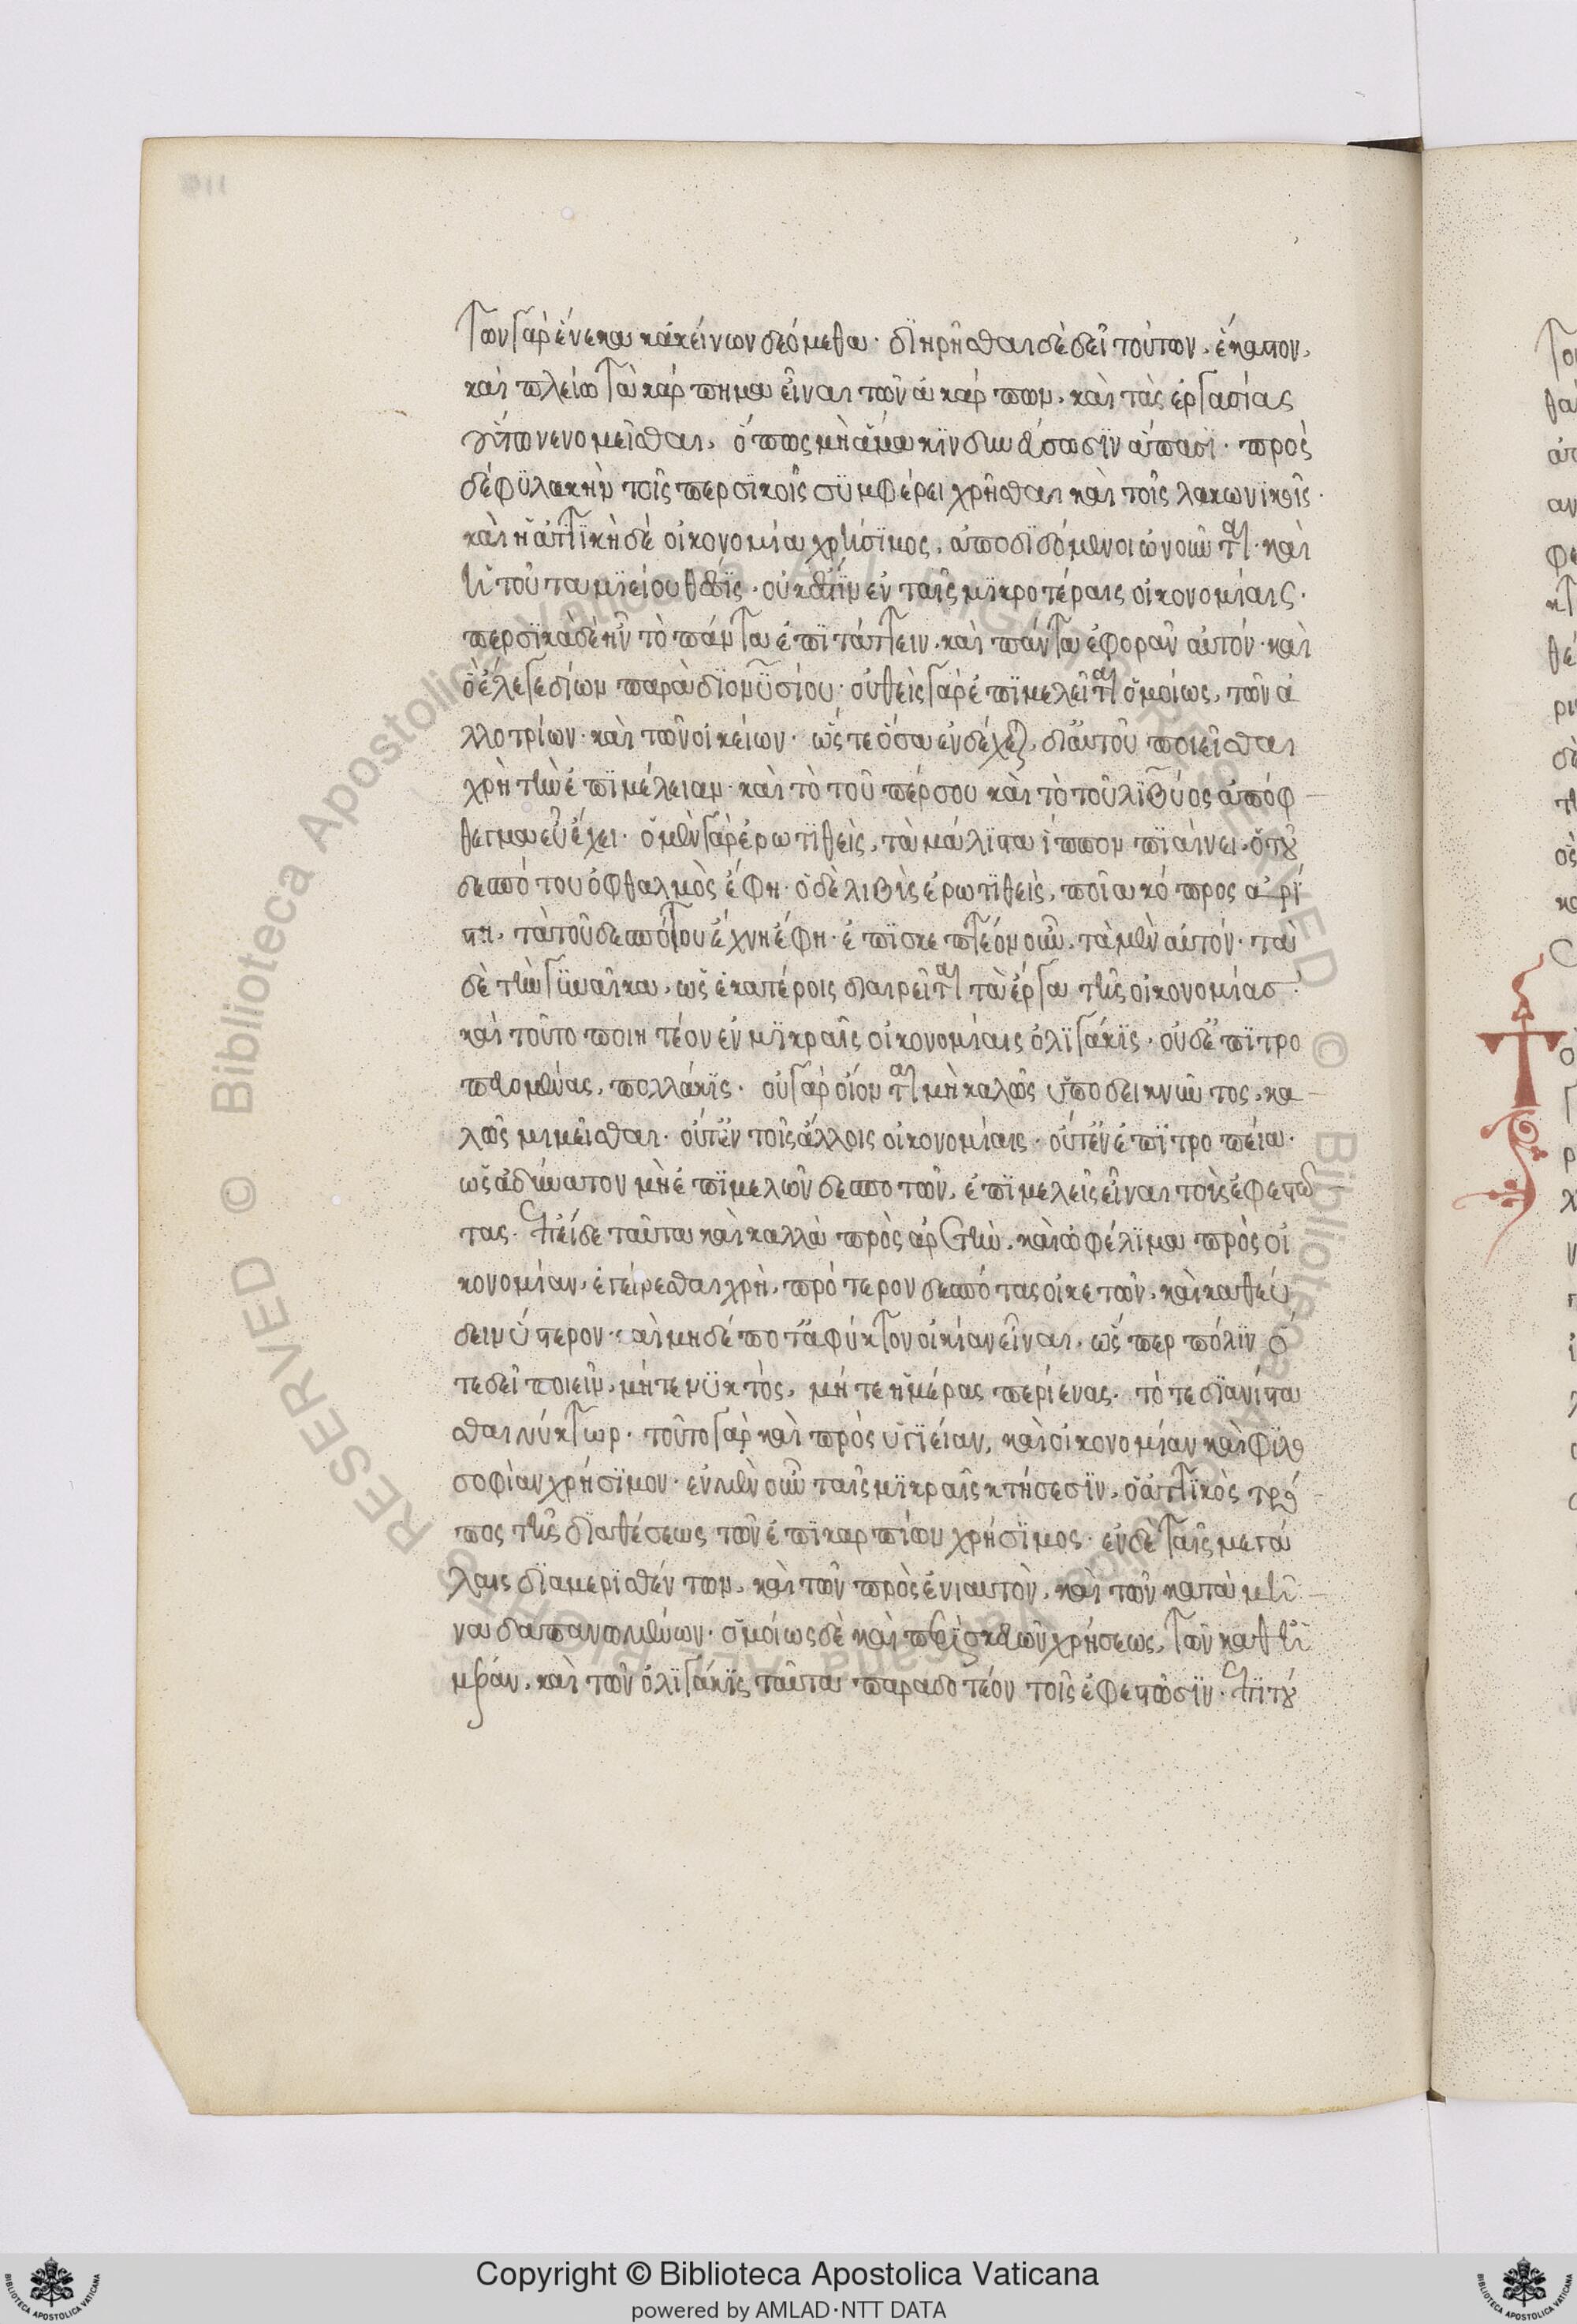 τῶν γὰρ ἕνεκα κἀκείνων δεόμεθα· διηρῆσθαι δὲ δεῖ τούτων, ἕκαστον,
καὶ πλείω τὰ κάρπημα εἶναι τῶν ἀκάρπων, καὶ τὰς ἐργασίας
οὕτω νενομεῖσθαι, ὅπως μὴ ἅμα κινδυνεύσωσϊν ἅπασϊ· πρὸς
δέ φϋλακὴν τοῖς περσϊκοῖς συμφέρει χρῆσθαι καὶ τοῖς λακωνϊκοῖς.
καὶ ἡ ἀττϊκὴ δέ οἰκονομία χρήσϊμος, ἀποδϊδόμενοι ὠνοῦνται· καὶ
ἡ τοῦ ταμϊείου θέσϊς, οὐκ ἔστϊν ἐν ταῖς μϊκροτέραις οἰκονομίαις.
περσϊκὰ δὲ ἦν τὸ πάντα ἐπϊτάττειν, καὶ πάντα ἐφορᾶν αὐτόν· καὶ
ὃ ἔλεγε δίων παρὰ δϊονϋσίου· οὐθεὶς γὰρ ἐπϊμελεῖται ὁμοίως, τῶν ἀ
λλοτρίων· καὶ τῶν οἰκείων· ὥστε ὅσα ἐνδέχεται, δι' αὐτοῦ ποιεῖσθαι
χρὴ τὴν ἐπϊμέλειαν· καὶ τὸ τοῦ πέρσου καὶ τὸ τοῦ λϊβϋος ἀπόφ
θεγμα εὖ ἔχει· ὁ μὲν γὰρ ἐρωτϊθεὶς, τὰ μάλϊστα ἵππον πϊαίνει, ὁ τοῦ
δεσπότου ὀφθαλμὸς ἔφη· ὁ δὲ λιβὶς ἐρωτϊθεὶς, ποῖα κόπρος ἀρί
στη, τὰ τοῦ δεσπότου ἔχνη ἔφη· ἐπϊσκεπτέον οὖν, τὰ μὲν αὐτόν· τὰ
δὲ τὴν γϋναῖκα, ὡς ἑκατέροις διαιρεῖται τὰ ἔργα τῆς οἰκονομίασ.
καὶ τοῦτο ποιητέον ἐν μϊκραῖς οἰκονομίαις ὀλϊγάκϊς· οὐδ' ἐπϊτρο
πευομένας, πολλάκϊς· οὐ γὰρ οἷον ται μὴ καλῶς ὑποδεικνῦντος, κα
λῶς μιμεῖσθαι· οὔτ' ἐν τοῖς ἄλλοις οἰκονομίαις· οὔτ' ἐν ἐπϊτροπεία·
ὡς ἀδύνατον μὴ ἐπϊμελῶν δεσποτῶν, ἐπϊμελεῖς εἶναι τοὺς ἐφεστῶ
τας. ἐπεί δε ταῦτα καὶ καλλὰ πρὸς ἀρετὴν, καὶ ὠφέλϊμα πρὸς οἰ
κονομίαν, ἐγείρεσθαι χρὴ, πρότερον δεσπότας οἰκετῶν, καὶ καθεύ
δειν ὕστερον· καὶ μηδέποτ' ἀφύκτον οἰκίαν εἶναι, ὥσπερ πόλϊν ὅ
τε δεῖ ποιεῖν, μήτε νϋκτὸς, μήτε ἡμέρας περϊένας· τό τε δϊανίστα
σθαι νύκτωρ· τοῦτο γὰρ καὶ πρὸς ὑγϊείαν, καὶ οἰκονομίαν καὶ φϊλο
σοφὶαν χρήσϊμον· ἐν μὲν οὖν ταῖς μϊκραῖς κτήσεσϊν, ὁ ἀττϊκὸς τρό
πος τῆς δϊαθέσεως τῶν ἐπϊκαρπίων χρήσϊμος· ἐν δὲ ταῖς μεγά
λαις δϊαμερϊσθέντων, καὶ τῶν πρὸς ἐνιαυτὸν, καὶ τῶν κατὰ μῆ
να δαπανωμένων· ὁμοίως δὲ καὶ περὶ σκευῶν χρήσεως, τῶν καθ' ἡ
μέραν, καὶ τῶν ὀλϊγάκϊς ταῦτα παραδοτέον τοῖς ἐφεστῶσϊν· ἐπϊ τού
Copyright © Biblioteca Apostolica Vaticana
powered by AMLAD·NTT DATA